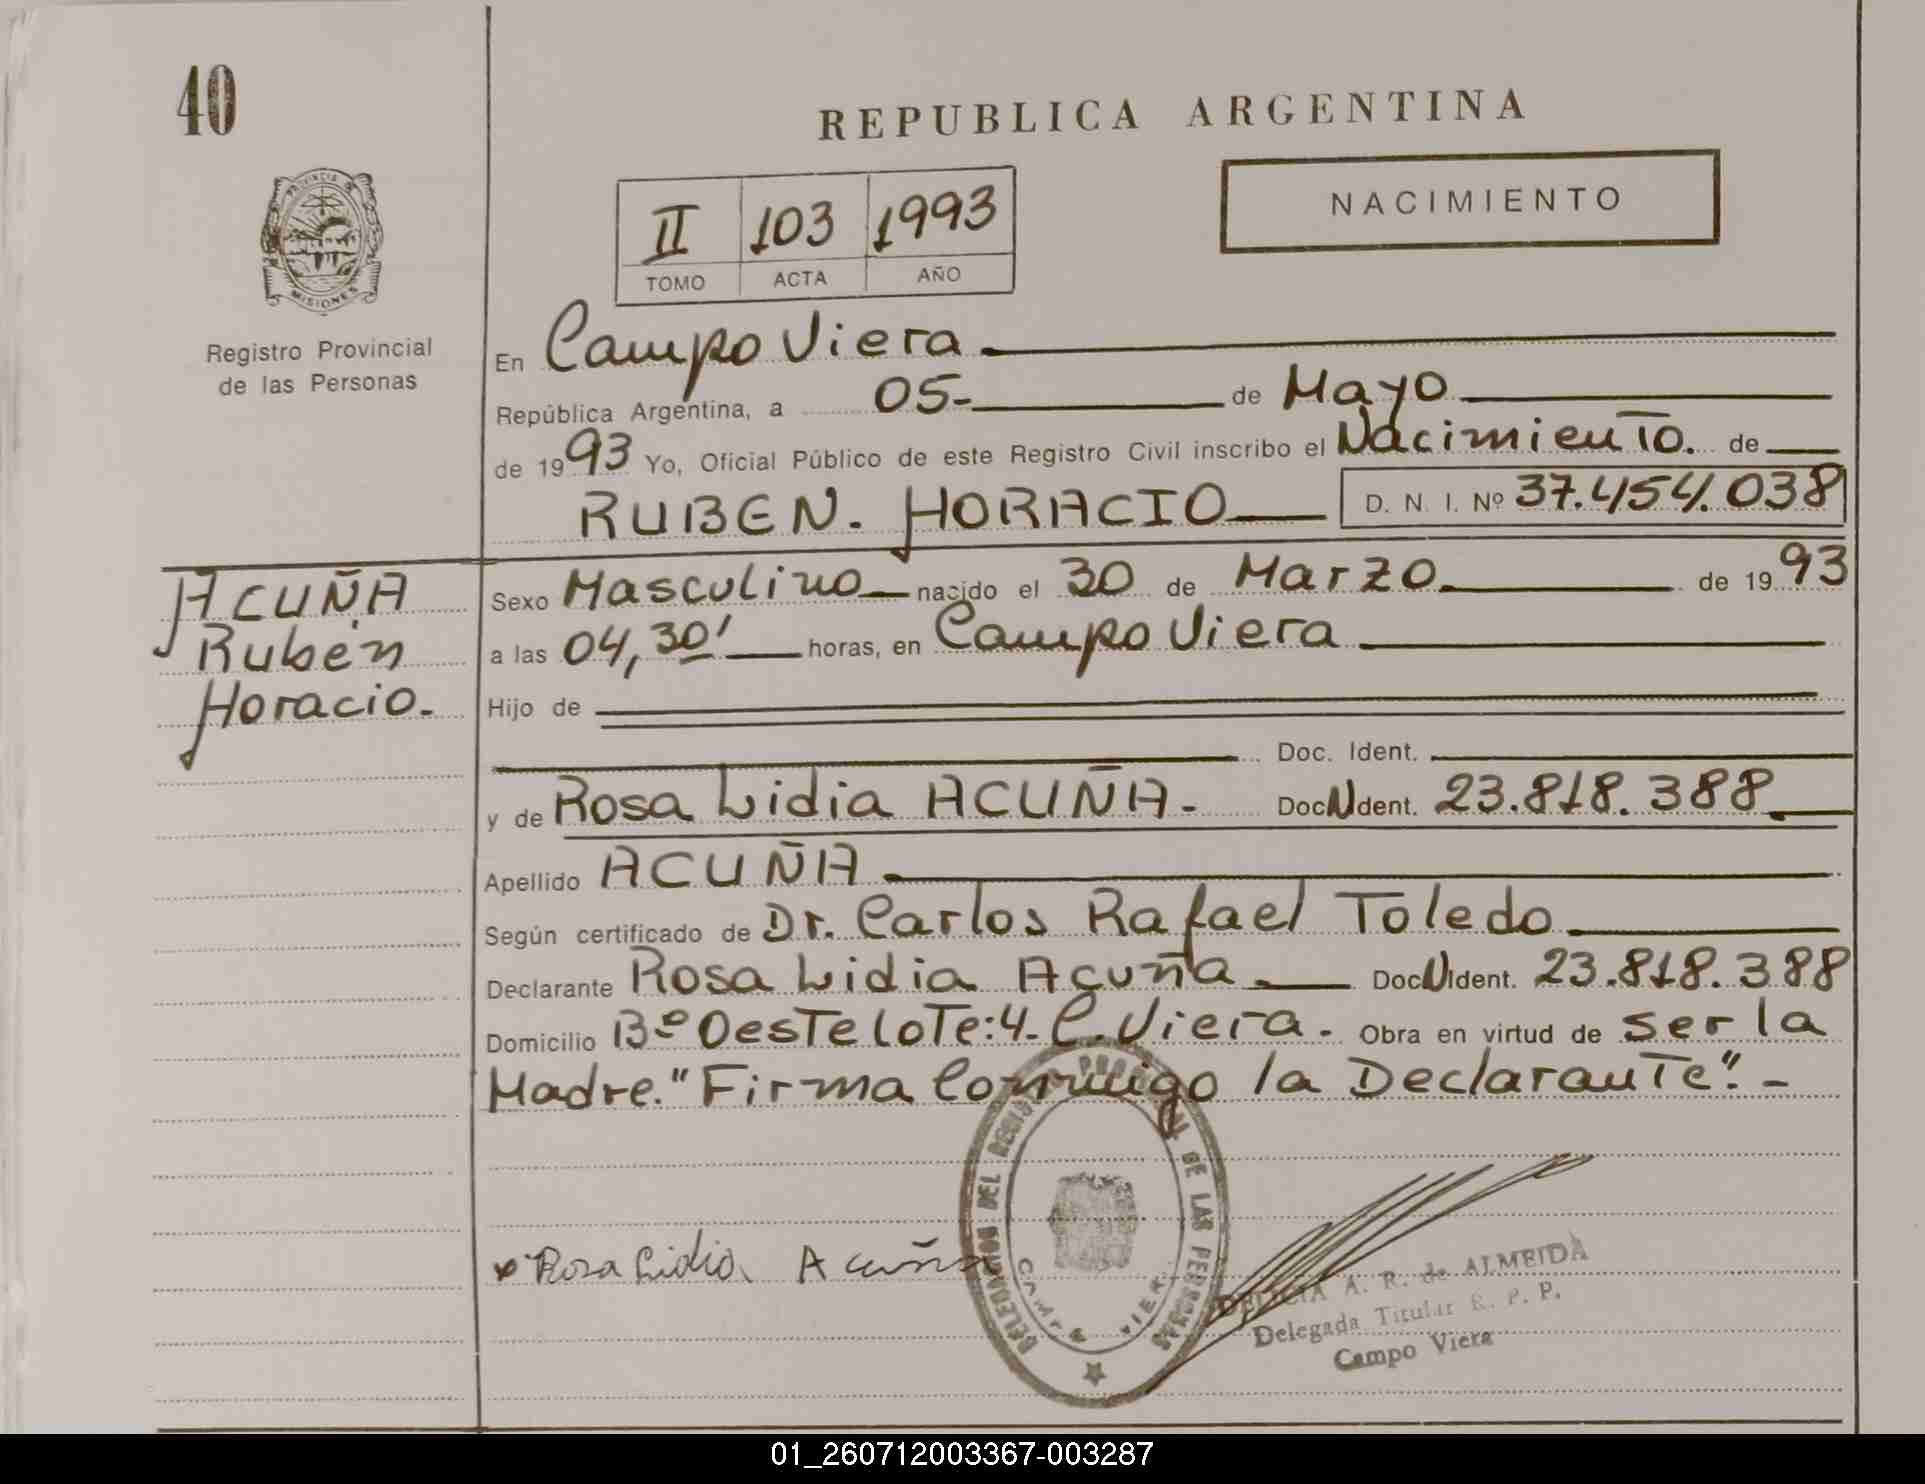 40
REPUBLICA ARGENTINA
NACIMIENTO
II 103 1993
TOMO ACTA AÑO
PROVINCIA DE
MISIONES
Registro Provincial
de las Personas
En Campo Viera
República Argentina, a 05- de Mayo
de 1993 Yo, Oficial Público de este Registro Civil inscribo el Nacimiento. de
RUBEN. HORACIO D. N. I. Nº 37.454.038
ACUÑA
Rubén
Horacio.
Sexo Masculino nacido el 30 de Marzo de 1993
a las 04,30' horas, en Campo Viera
Hijo de
Doc. Ident.
y de Rosa Lidia ACUÑA.- DocNdent. 23.818.388
Apellido ACUÑA
Según certificado de Dr. Carlos Rafael Toledo
Declarante Rosa Lidia Acuña. DocNIdent. 23.818.388
Domicilio Bº Oeste lote:4. C. Viera. Obra en virtud de ser la
Madre." Firma Conmigo la Declarante".-
DELEGACION DEL REGISTRO PROVINCIAL DE LAS PERSONAS
CAMPO VIERA
Rosa Lidia Acuña
DELICIA A. R. de ALMEIDA
Delegada Titular R. P. P.
Campo Viera
01_260712003367-003287